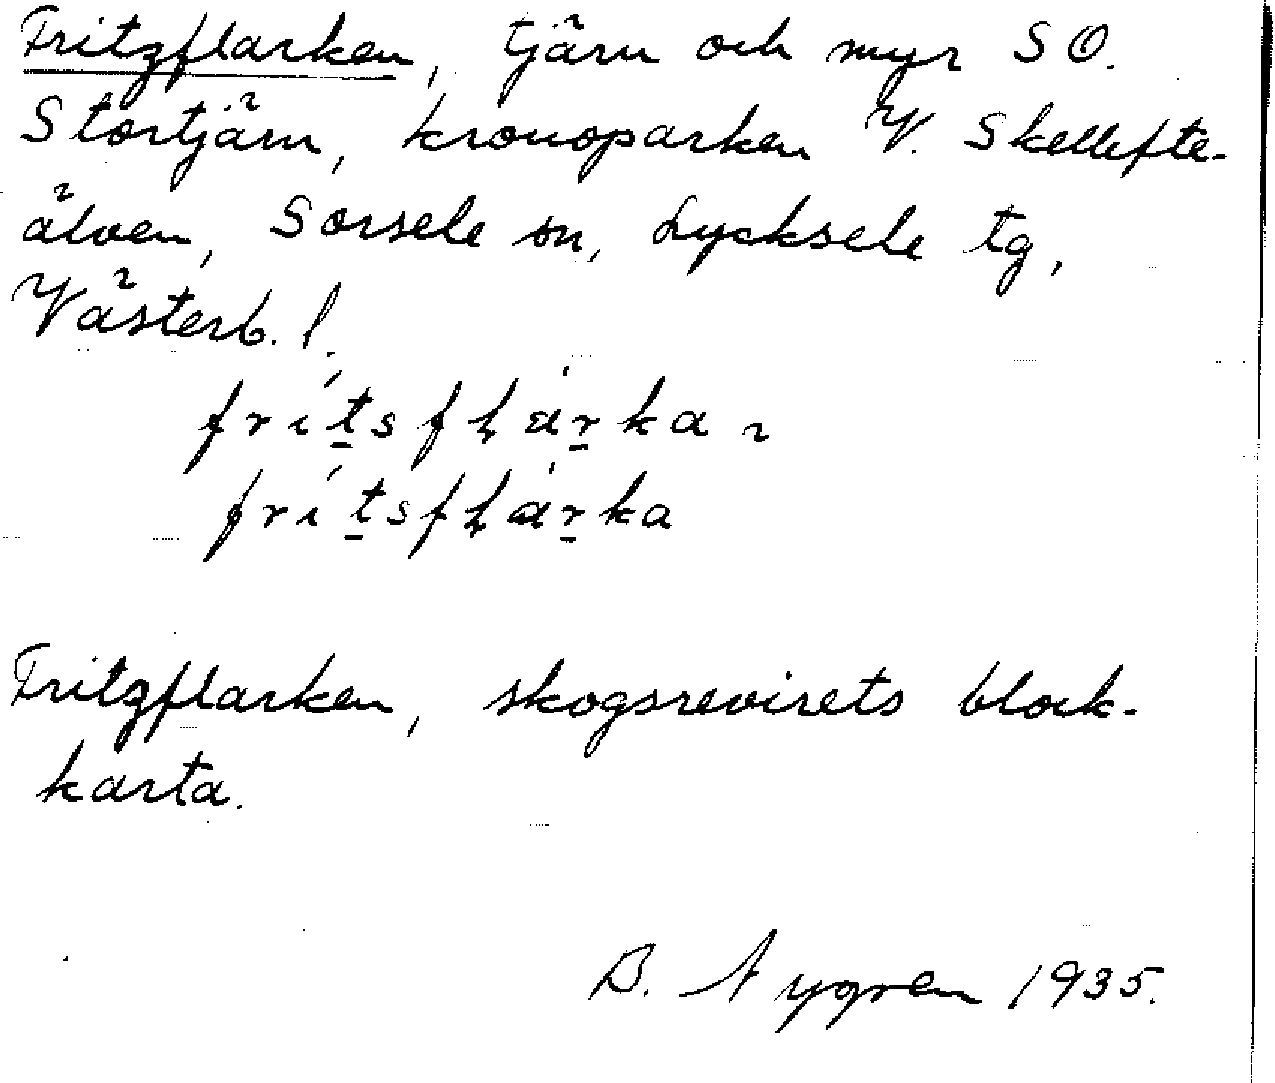 Fritzflarken, tjärn och myr SO.
Stortjärn, kronoparken V. Skellefte-
älven, Sorsele sn, Lycksele tg,
Västerb. l.
frít̠sfɫár̠ka ~
frít̠sfɫár̠ka
Fritzflarken, skogsrevirets block-
karta.
B. Nygren 1935.